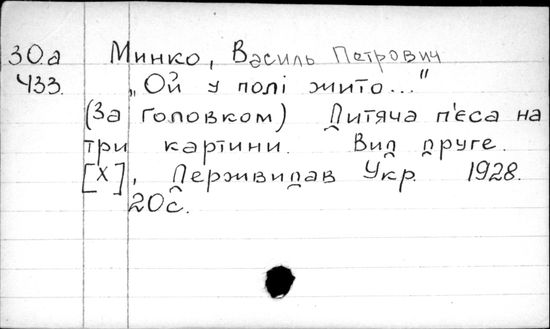 30а Минко, Василь Петрович
433. „Ой у полі жито..."
(За Головком) Дитяча п'єса на
три картини. Вид друге.
[Х], Держвидав Укр. 1928.
20с.